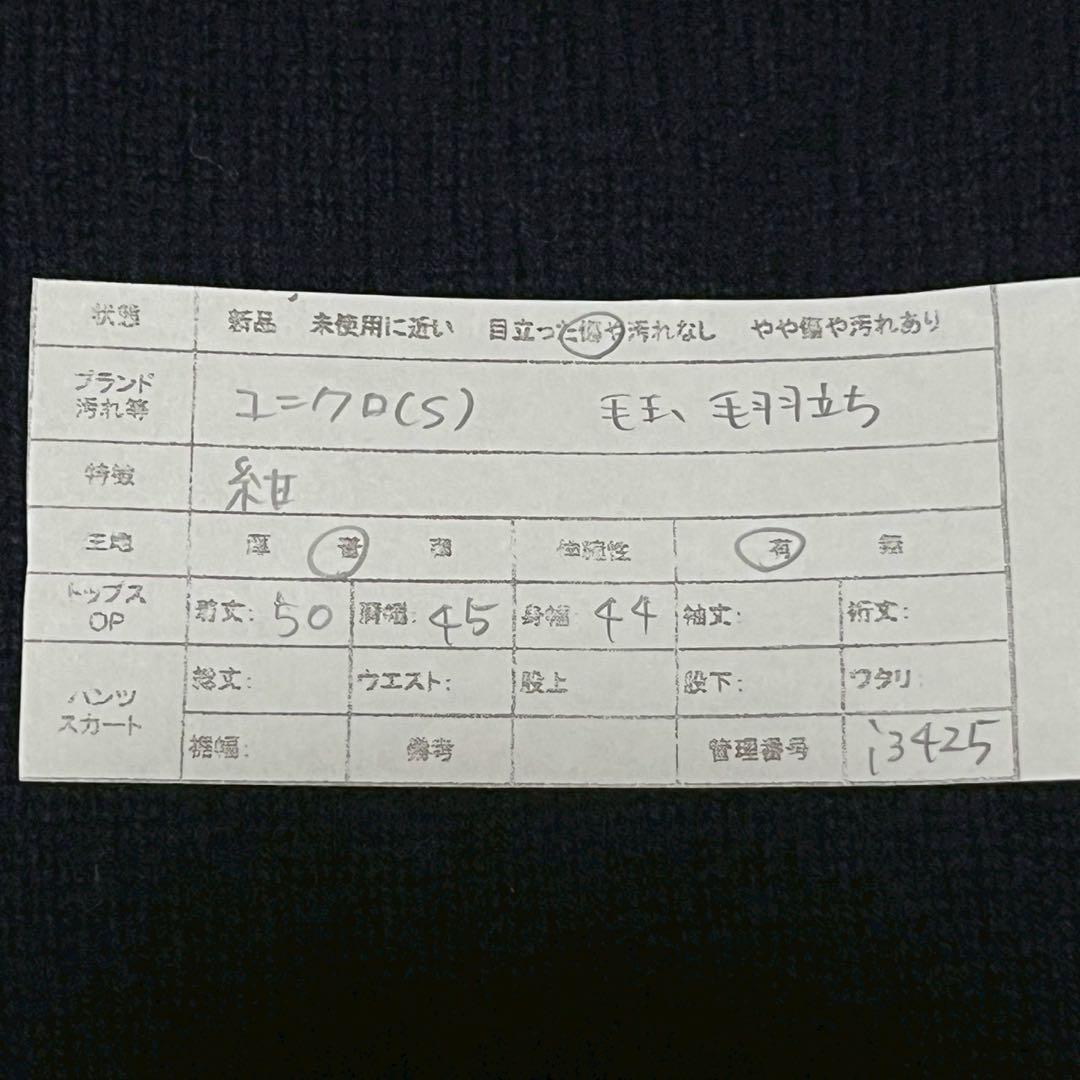 状態 新品 未使用に近い 目立った傷や汚れなし やや傷や汚れあり
ブランド
汚れ等 ユニクロ(S) 毛玉、毛羽立ち
特徴 紺
生地 厚 普 薄 伸縮性 有 無
トップス
OP 着丈: 50 肩幅: 45 身幅 44 袖丈: 裄丈:
パンツ
スカート 総丈: ウエスト: 股上 股下: ワタリ:
裾幅: 備考 管理番号 i3425